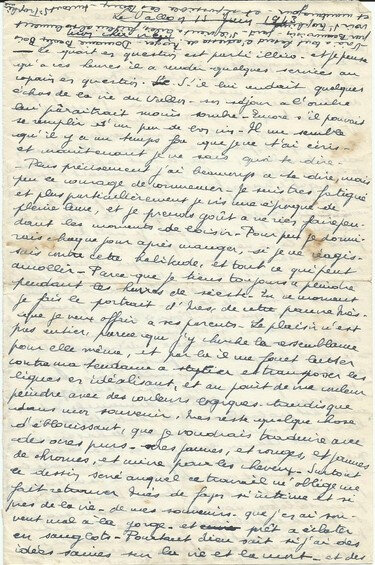 Le 11 juin
le quart en question est parti illico - et je pense
qu'à ces heures il a rendu quelques services au
copain en question. S'il lui rendait quelques
échos de la vie du Vallon - son séjour à l'ombre
lui paraîtrait moins sombre - Encore s'il pouvait
se remplir d'un peu de bon vin - Il me semble
qu'il y a un temps fou que je ne t'ai écrit -
et maintenant je ne sais quoi te dire -
Plus précisement j'ai beaucoup à te dire, mais
peu ce courage de commencer - Je suis très fatigué
et plus particulièrement je vis une époque de
pleine lune, et je prends goût à ne rien faire pen-
dant les moments de loisir - Pour peu je dormi-
rais chaque jour après manger, si je ne réagis-
sais contre cette habitude, et tout ce qui peut
amollir - Parce que je tiens toujours à peindre
pendant les heures de sieste - En ce moment
je fais le portrait d'Inès, de cette pauvre Inès -
que je veux offrir à ses parents. Le plaisir n'est
pas entier, parce que j'y cherche la ressemblance
pour elle même, et par là il me faut lutter
contre ma tendance à styliser et transposer les
lignes en idéalisant, et au point de vue couleur
peindre avec des couleurs logiques - tandis que
dans mon souvenir, Inès reste quelque chose
d'éblouissant, que je voudrais traduire avec
des ocres purs - jaunes, et rouges, et jaunes
de chromes, et mine pour les cheveux - Surtout
ce dessin serré auquel ce travail m'oblige me
fait retrouver Inès de façon si intime et si
près de la vie - de mes souvenirs - que j'en ai sou-
vent mal à la gorge - et prêt à éclater
en sanglots - Pourtant Dieu sait si j'ai des
idées saines sur la vie et la mort - et des